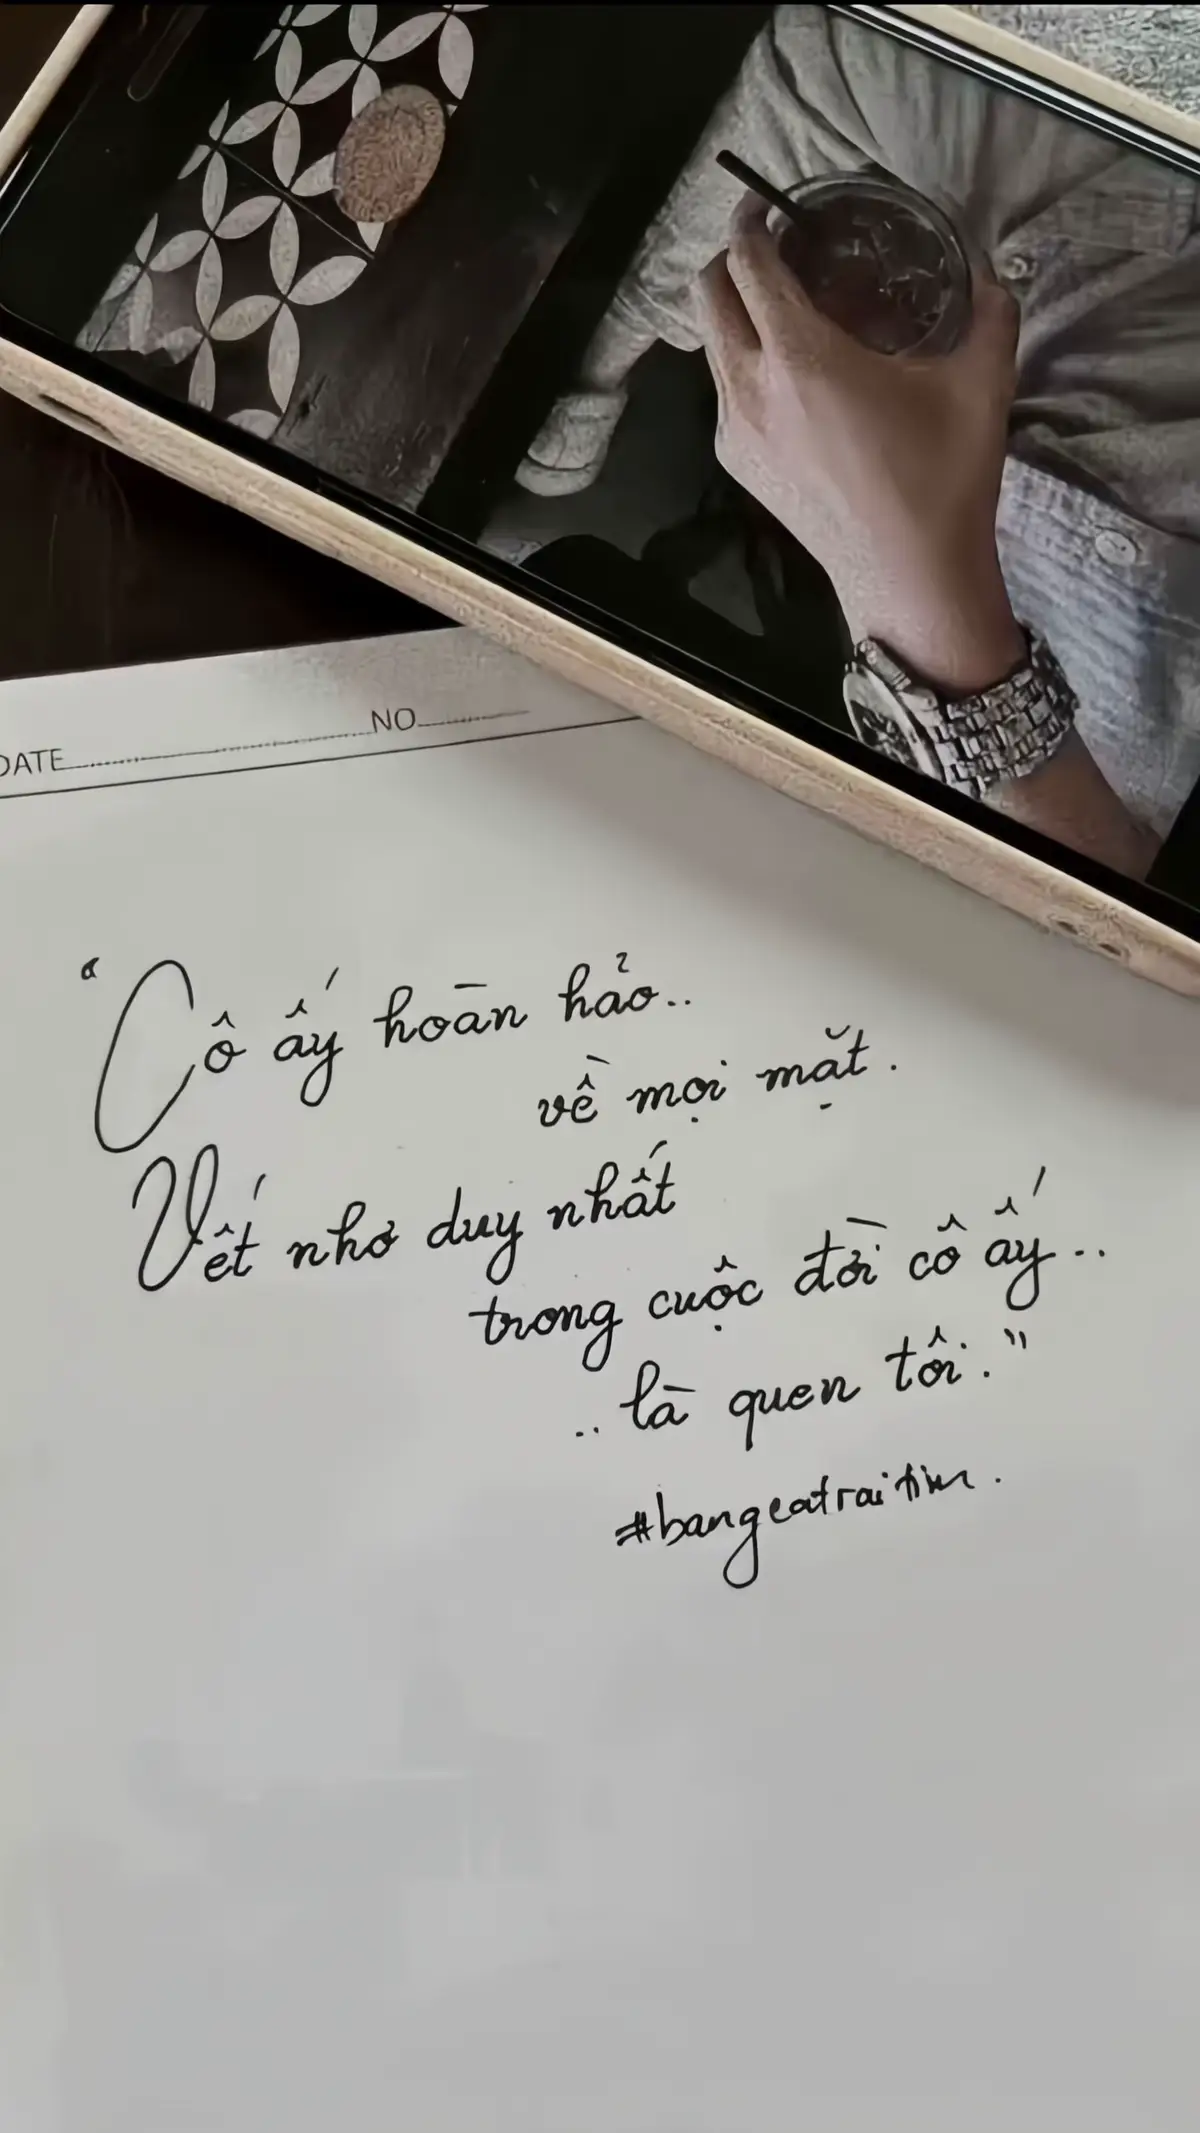 DATE NO
"Cô ấy hoàn hảo..
về mọi mặt.
Vết nhơ duy nhất
trong cuộc đời cô ấy..
..là quen tôi."
#bangcatraitim.